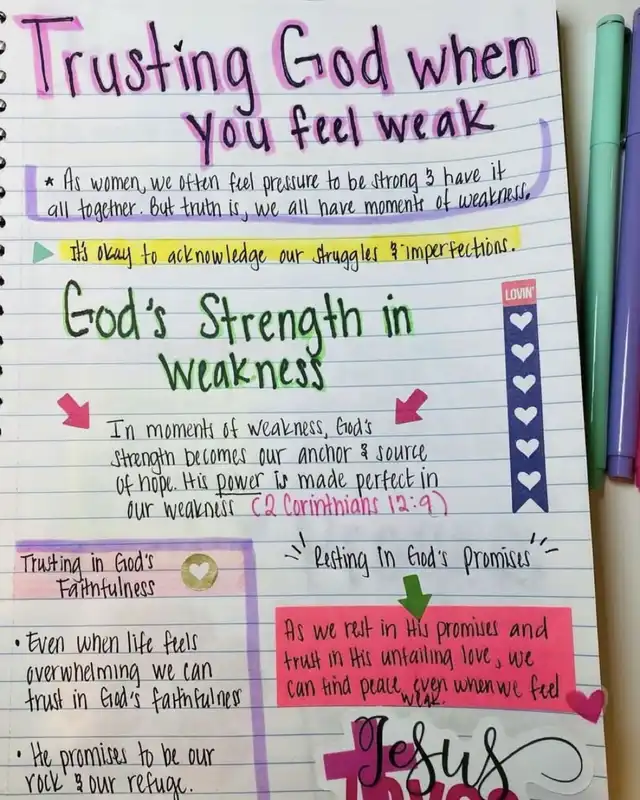 Trusting God when
you feel weak
* As women, we often feel pressure to be strong & have it
all together. But truth is, we all have moments of weakness.
It's okay to acknowledge our struggles & imperfections.
God's Strength in
Weakness
LOVIN'
In moments of weakness, God's
strength becomes our anchor & source
of hope. His power is made perfect in
our weakness (2 Corinthians 12:9)
Trusting in God's
Faithfulness
• Even when life feels
overwhelming we can
trust in God's faithfulness
• He promises to be our
rock & our refuge.
Resting in God's Promises
As we rest in His promises and
trust in His unfailing love, we
can find peace, even when we feel
weak.
Jesus